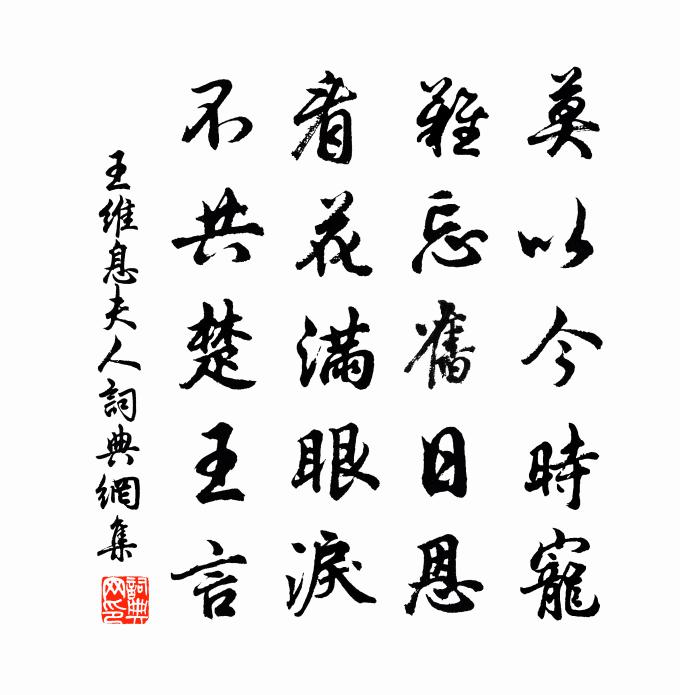 莫以今時寵
難忘舊日恩
看花滿眼淚
不共楚王言
王維息夫人詞典網集
詞典網印